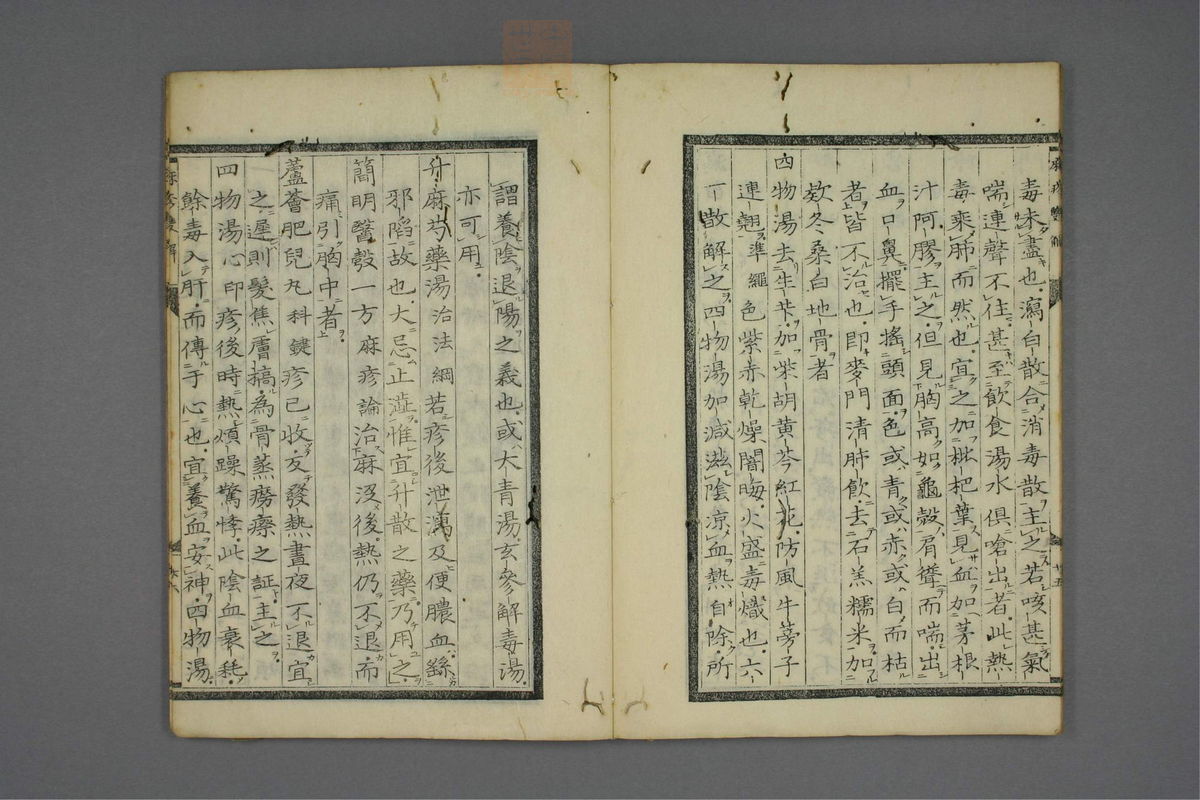 毒未盡也瀉白散合消毒散主之若咳甚氣
喘連聲不住甚至飲食湯水俱嗆出者此熱
毒乘肺而然也宜之加枇杷葉見血加茅根
汁阿膠主之但見胸高如龜殼肩聳而喘出
血口鼻擺手搖頭面色或青或赤或白而枯
者皆不治也即麥門清肺飲去石羔糯米加
欵冬桑白地骨者
四物湯去生芐加柴胡黃芩紅花防風牛蒡子
連翹準繩色紫赤乾燥闇晦火盛毒熾也六
一散解之四物湯加減滋陰凉血熱自除所
謂養陰退陽之義也或大青湯玄參解毒湯
亦可用
升麻芍藥湯治法綱若疹後泄瀉及便膿血繇
邪陷故也大忌止澁惟宜升散之藥乃用之
簡明醫彀一方麻疹論治麻沒後熱仍不退而
痛引胸中者
蘆薈肥兒丸科鍵疹已收友發熱晝夜不退宜
之遲則髮焦膚槁為骨蒸癆瘵之証主之
四物湯心印疹後時熱煩躁驚悸此陰血衰耗
餘毒入肝而傳于心也宜養血安神四物湯